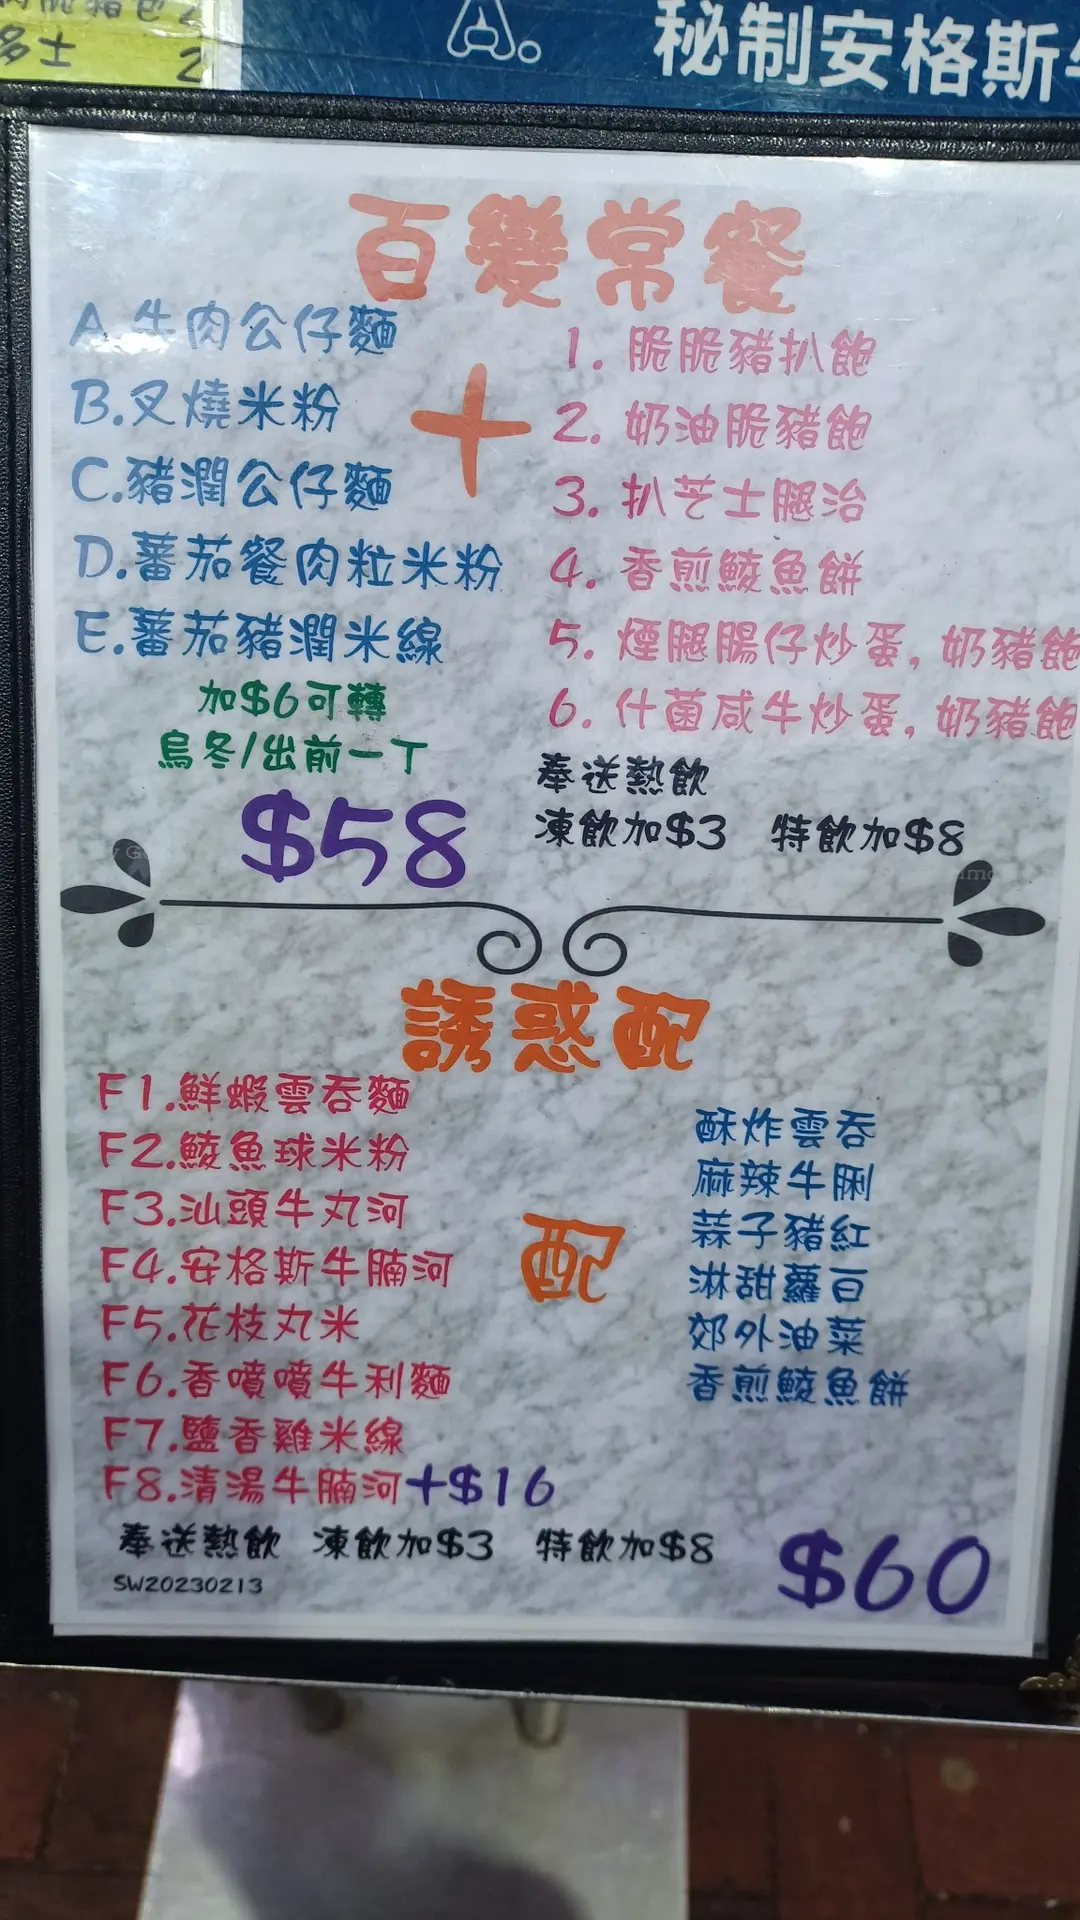 多士 2
秘制安格斯
百變常餐
A.牛肉公仔麵
B.叉燒米粉
C.豬潤公仔麵
D.蕃茄餐肉粒米粉
E.蕃茄豬潤米線
加$6可轉
烏冬/出前一丁
$58
+
1. 脆脆豬扒飽
2. 奶油脆豬飽
3. 扒芝士腿治
4. 香煎鯪魚餅
5. 煙腿腸仔炒蛋, 奶豬飽
6. 什菌咸牛炒蛋, 奶豬飽
奉送熱飲
凍飲加$3 特飲加$8
誘惑配
F1.鮮蝦雲吞麵
F2.鯪魚球米粉
F3.汕頭牛丸河
F4.安格斯牛腩河
F5.花枝丸米
F6.香噴噴牛利麵
F7.鹽香雞米線
F8.清湯牛腩河+$16
配
酥炸雲吞
麻辣牛脷
蒜子豬紅
淋甜蘿白
郊外油菜
香煎鯪魚餅
奉送熱飲 凍飲加$3 特飲加$8
SW20230213
$60